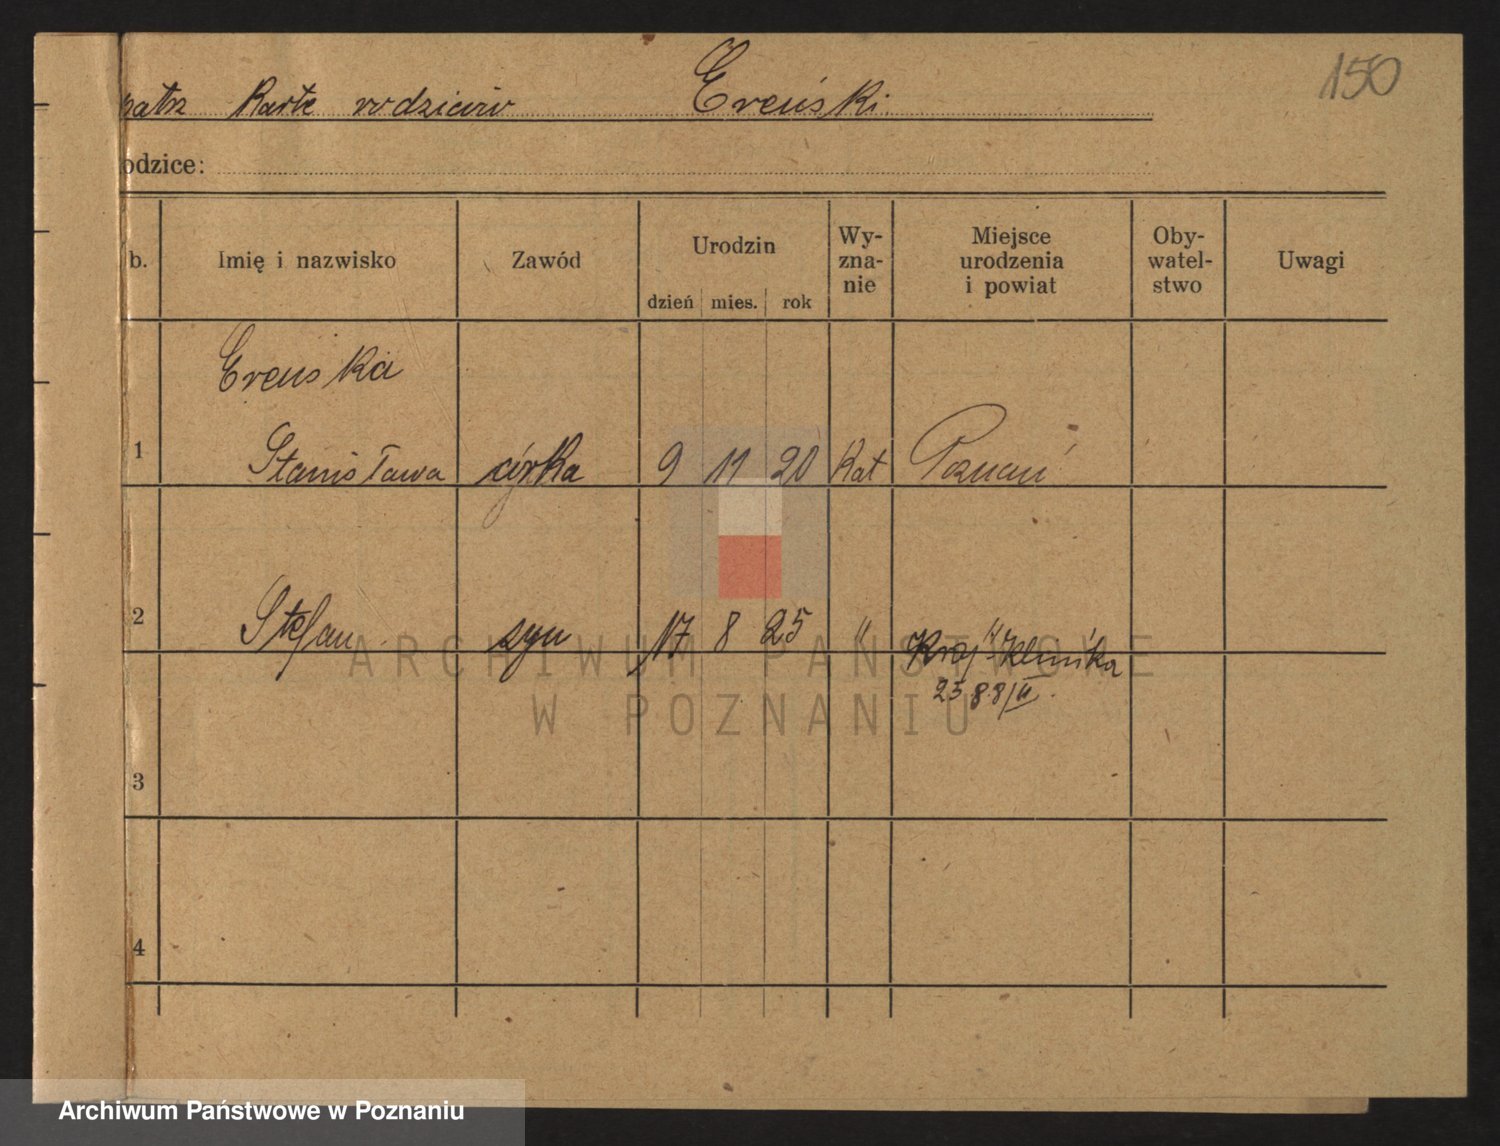 150
patrz Kartę rodziców Ereński
odzice:
b. Imię i nazwisko Zawód Urodzin dzień mies. rok Wy-zna-nie Miejsce urodzenia i powiat Oby-watel-stwo Uwagi
Ereńska
1 Stanisława córka 9 11 20 Kat Poznań
2 Stefan syn 17 8 25 " "
Kraj. Klinika
25 8
3
4
ARCHIWUM PAŃSTWOWE
W POZNANIU
Archiwum Państwowe w Poznaniu